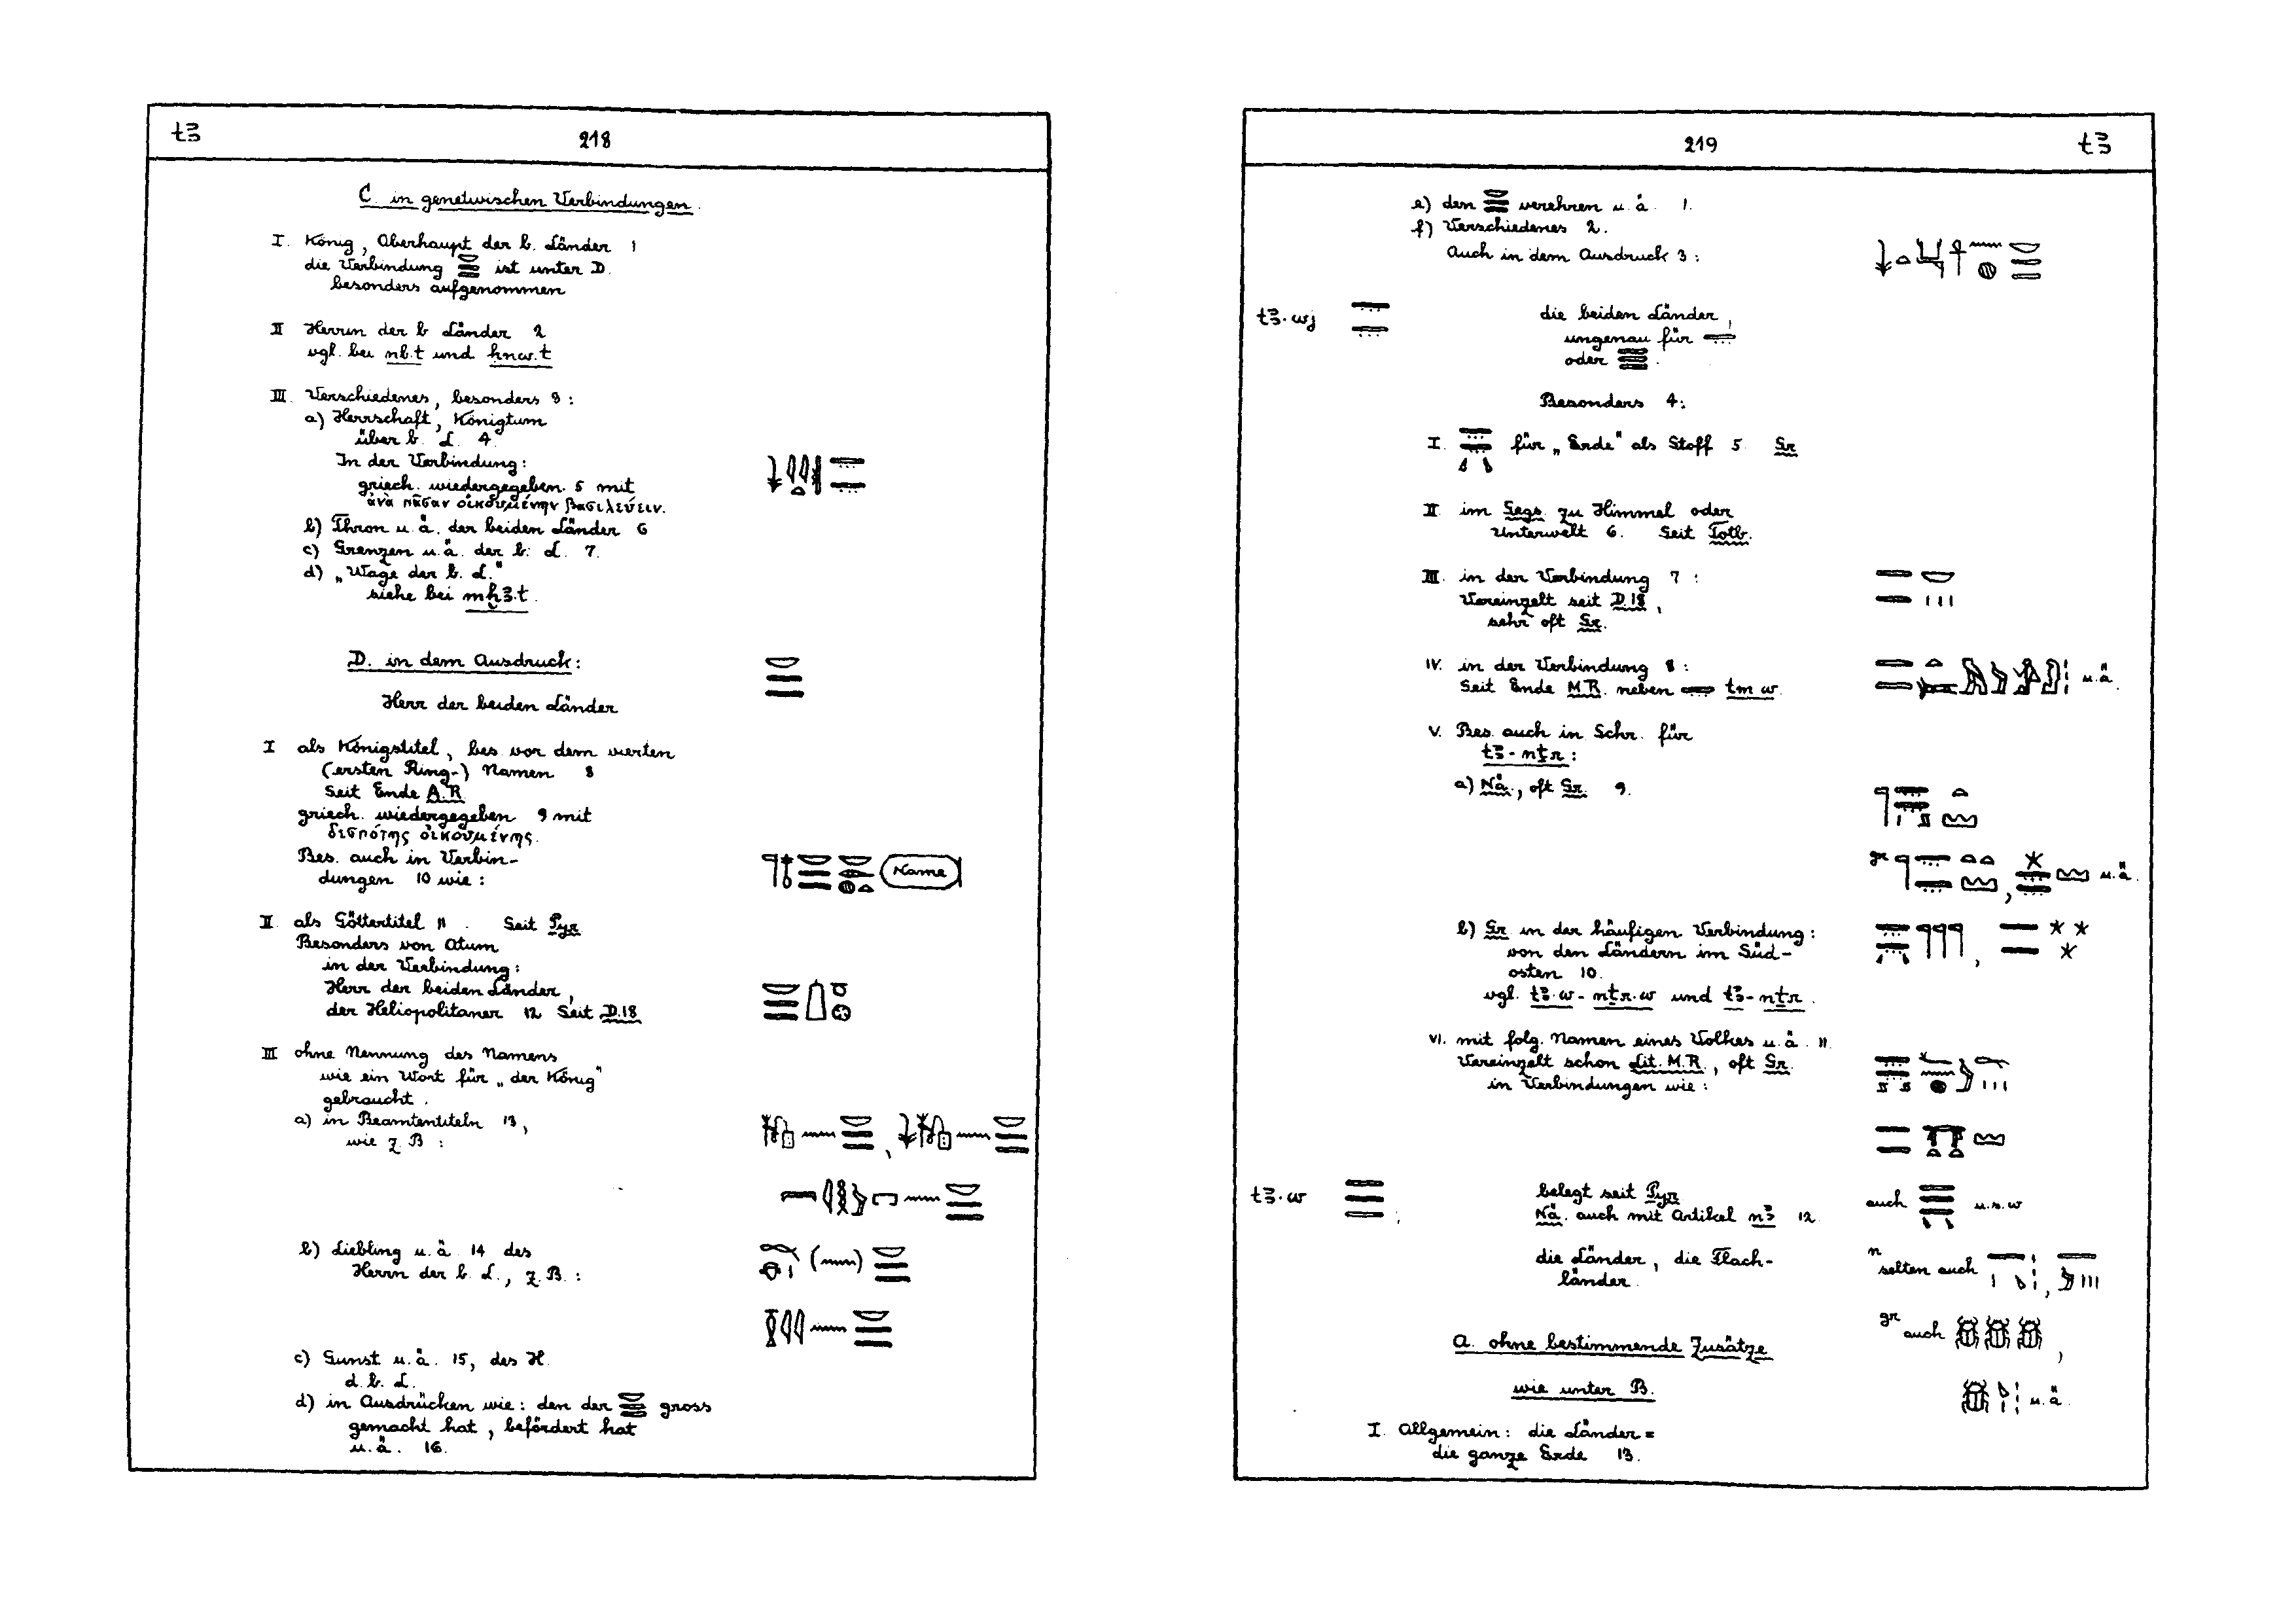 tꜣ
218
C. in genetivischen Verbindungen.
I. König, Oberhaupt der b. Länder 1
die Verbindung 𓎟𓇾𓇾 ist unter D.
besonders aufgenommen
II Herrin der b Länder 2
vgl. bei nb.t und ḥnw.t
III. Verschiedenes, besonders 3:
a) Herrschaft, Königtum
über b. L. 4.
In der Verbindung:
griech. wiedergegeben 5 mit
ἀνὰ πᾶσαν οἰκουμένην βασιλεύειν.
b) Thron u. ä. der beiden Länder 6
c) Grenzen u. ä. der b. L. 7.
d) „Wage der b. L."
siehe bei mḫꜣ.t.
D. in dem Ausdruck: 𓎟𓇾𓇾
Herr der beiden Länder
I als Königstitel, bes. vor dem vierten
(ersten Ring-) Namen 8
Seit Ende A.R.
griech. wiedergegeben 9 mit
δεσπότης οἰκουμένης.
Bes. auch in Verbin-
dungen 10 wie: Name
II als Göttertitel 11. Seit Pyr
Besonders von Atum
in der Verbindung:
Herr der beiden Länder,
der Heliopolitaner 12 Seit D.18
III ohne Nennung des Namens
wie ein Wort für „der König"
gebraucht.
a) in Beamtentiteln 13,
wie z. B:
b) Liebling u. ä 14 des
Herrn der b. L., z. B.:
c) Gunst u. ä. 15, des H.
d. b. L.
d) in Ausdrücken wie: den der 𓎟𓇾𓇾 gross
gemacht hat, befördert hat
u. ä. 16.
219
tꜣ
e) den 𓎟𓇾𓇾 verehren u. ä. 1.
f) Verschiedenes 2.
Auch in dem Ausdruck 3:
tꜣ.wj 𓇾𓇾 die beiden Länder,
ungenau für 𓇾
oder 𓇾𓇾𓇾.
Besonders 4:
I. für „Erde" als Stoff 5 Gr
II im Ggs. zu Himmel oder
Unterwelt 6. Seit Totb.
III. in der Verbindung 7:
Vereinzelt seit D.18,
sehr oft Gr.
IV. in der Verbindung 8: u. ä.
Seit Ende M.R. neben tmw.
V. Bes. auch in Schr. für
tꜣ-nṯr:
a) Nä., oft Gr. 9.
gr u. ä.
b) Gr in der häufigen Verbindung:
von den Ländern im Süd-
osten 10.
vgl. tꜣ.w-nṯr.w und tꜣ-nṯr.
VI. mit folg. Namen eines Volkes u. ä. 11.
Vereinzelt schon Lit. M.R., oft Gr.
in Verbindungen wie:
tꜣ.w 𓇾𓇾𓇾; belegt seit Pyr auch u. s. w
Nä. auch mit Artikel nꜣ 12.
die Länder, die Flach- n selten auch
länder.
gr auch 𓆣𓆣𓆣,
A. ohne bestimmende Zusätze
wie unter B. u. ä.
I. Allgemein: die Länder =
die ganze Erde 13.